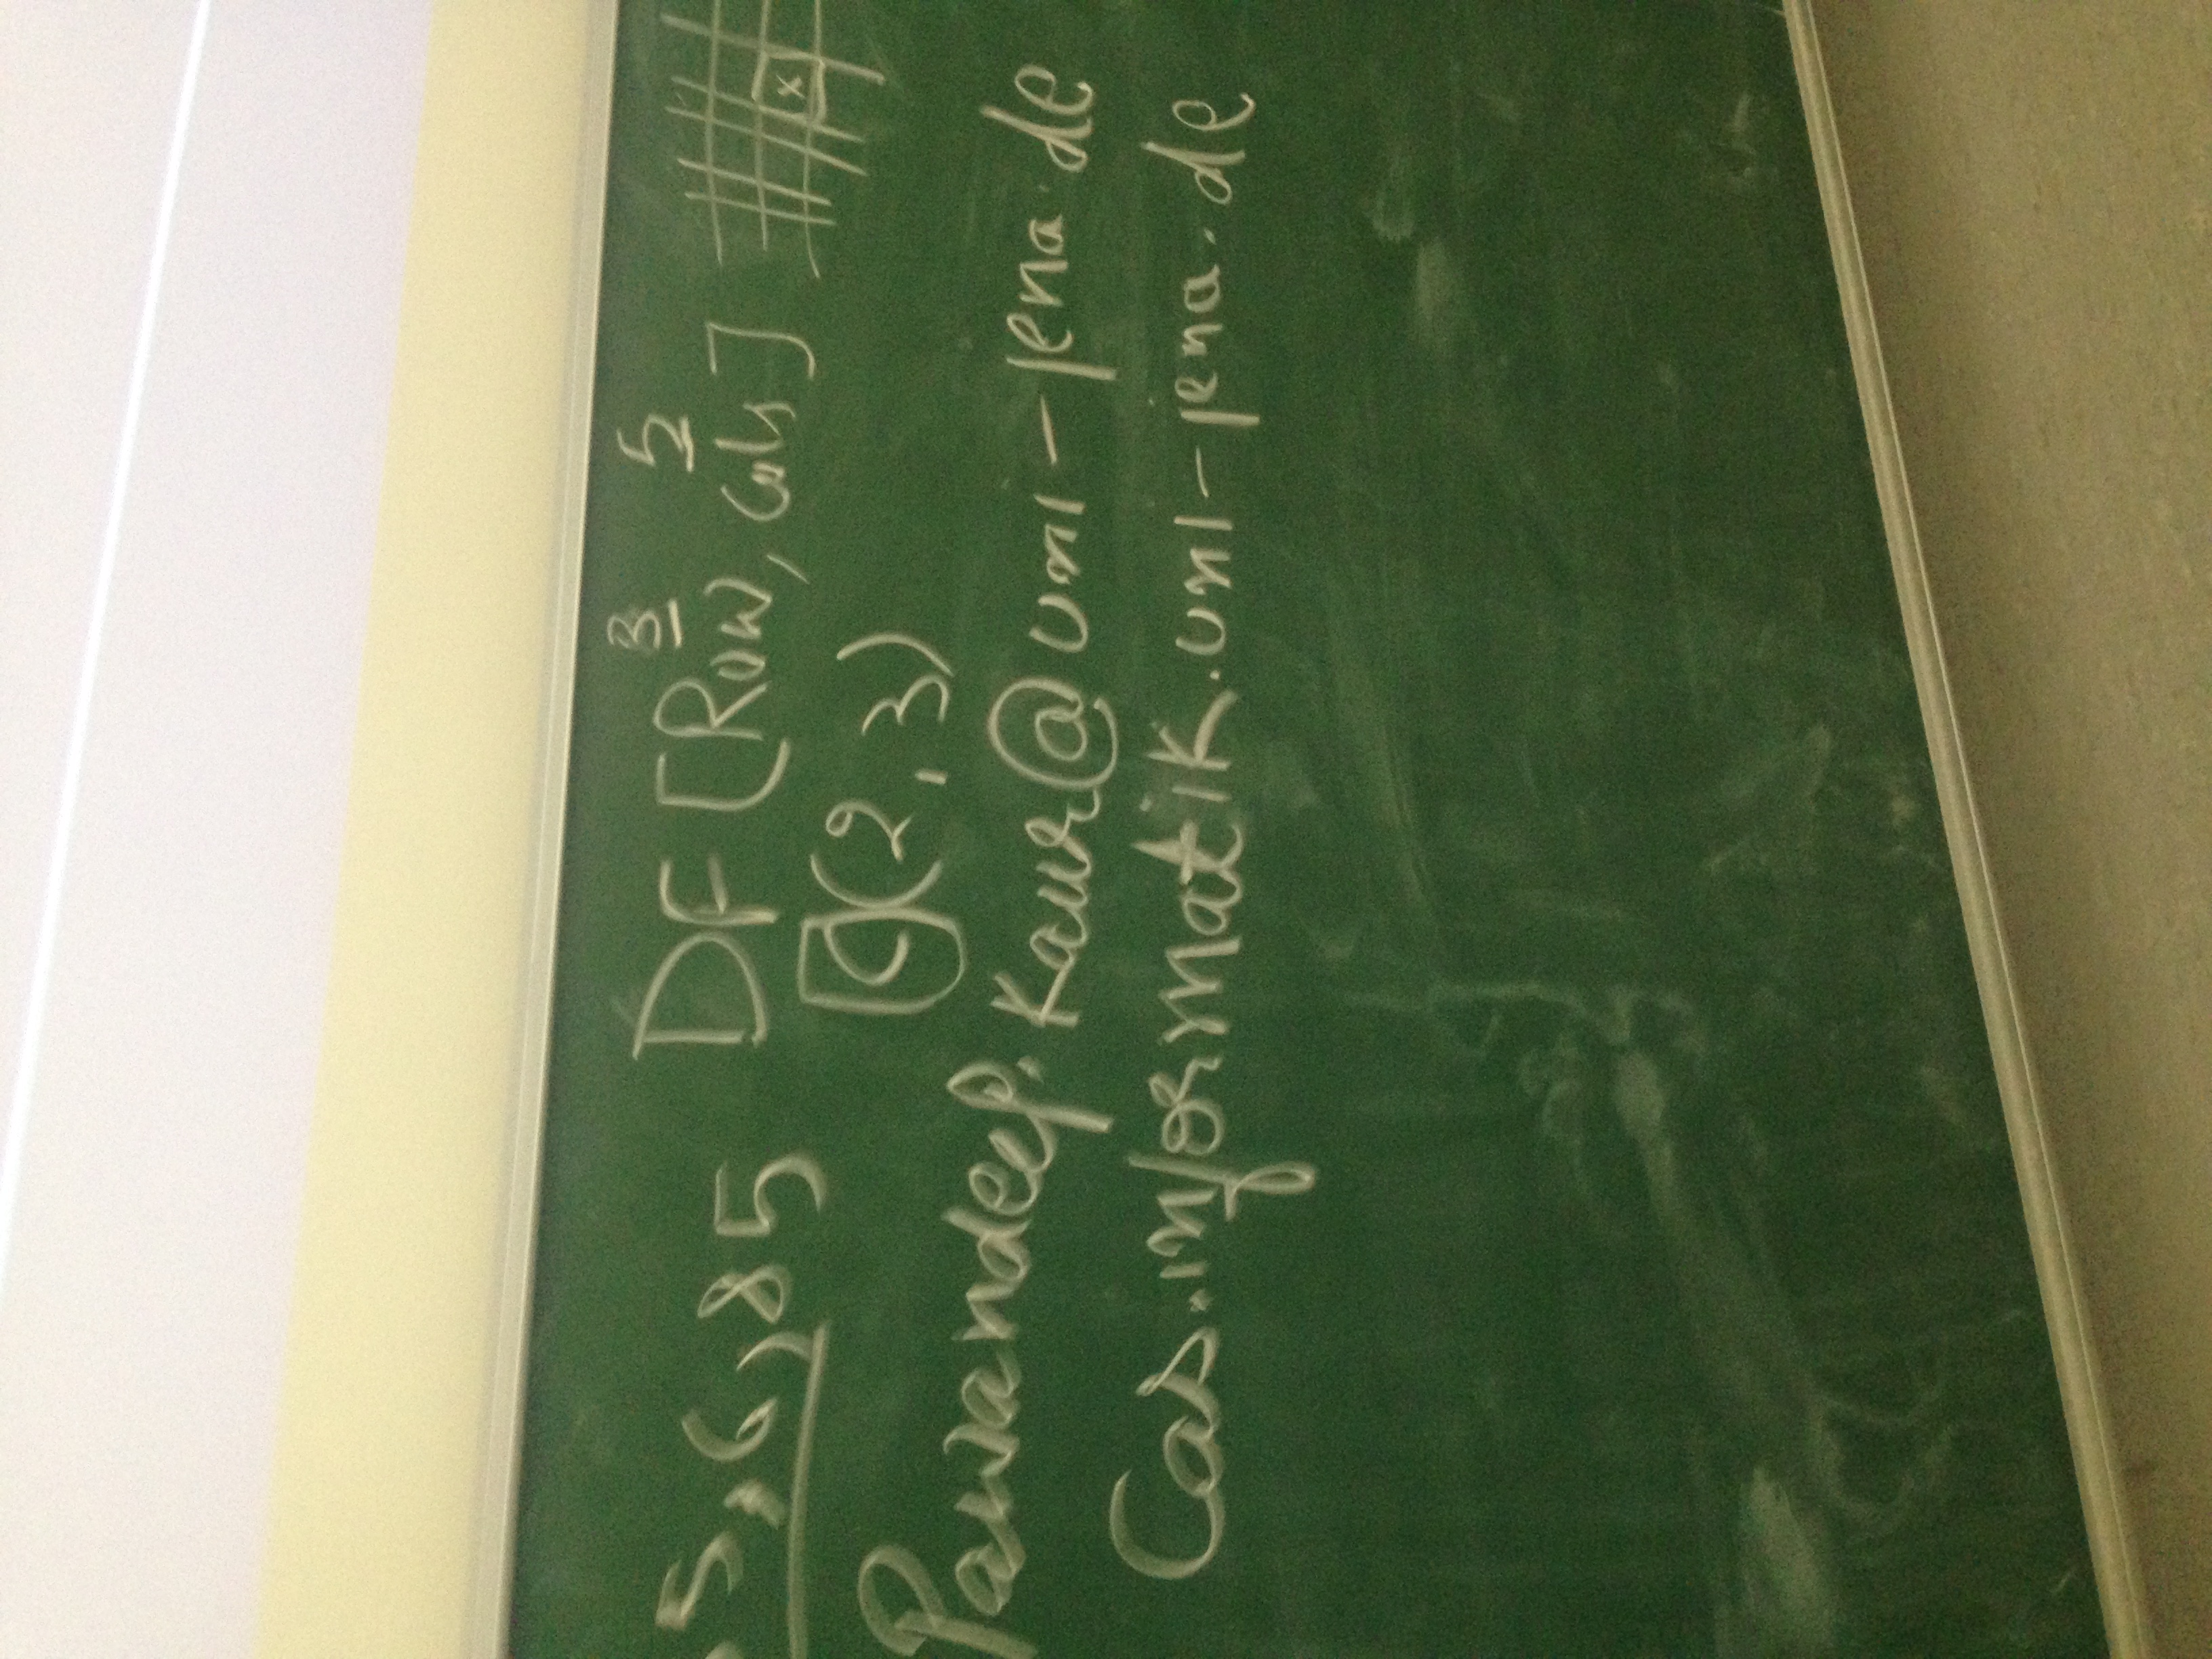 5,6,85 DF [Row, Cols]
3 5
x
C(2,3)
Pawandeep.Kaur@uni-jena.de
Cas.informatik.uni-jena.de